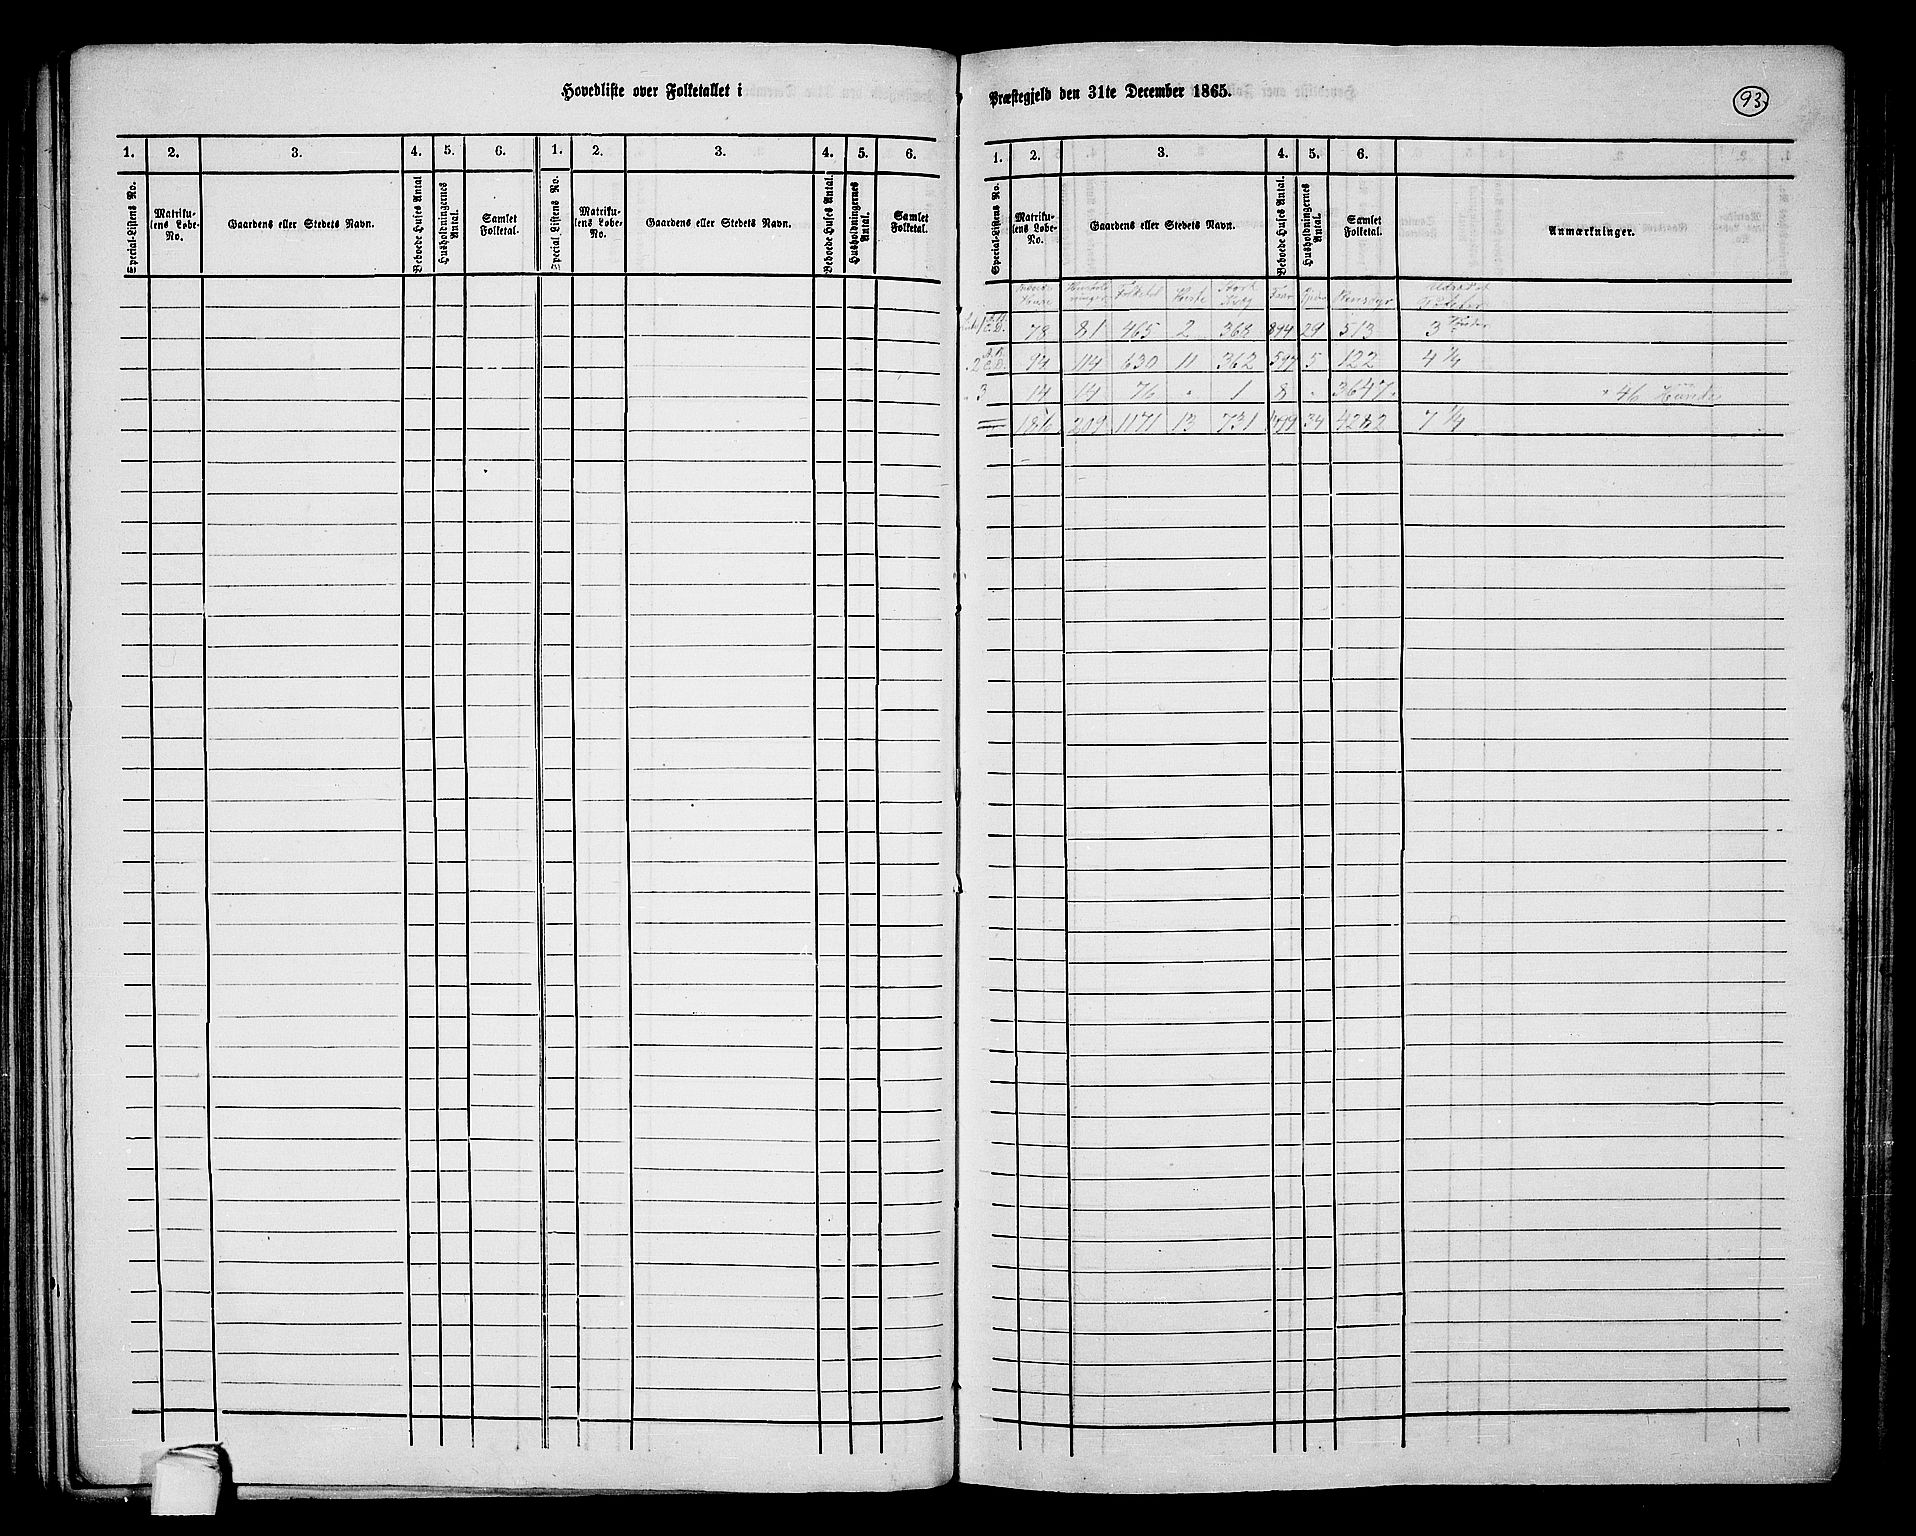 Hovedliste over Folketallet i
1. 2. 3. 4. 5. 6. 1. 2. 3. 4. 5. 6.
Special-Listens No. Matriku-lens Løbe-No. Gaardens eller Stedets Navn. Beboede Huses Antal Husholdningernes Antal. Samlet Folketal. Special Listens No. Matriku-lens Løbe-No. Gaardens eller Stedets Navn. Beboede Huses Antal. Husholdningernes Antal. Samlet Folketal.
Præstegjeld den 31te December 1865.
93
1. 2. 3. 4. 5. 6.
Special-Listens No. Matriku-lens Løbe-No. Gaardens eller Stedets Navn. Beboede Huses Antal. Husholdningernes Antal. Samlet Folketal. Anmærkninger.
Huse Folketal Heste Stort Kvæg Faar Rensdyr
78 81 465 2 368 894 29 513 3
2 94 114 630 11 362 597 5 122 4 ¼
3 14 14 76 " 1 8 " 3647 * 46 Hunde
186 209 1171 13 731 1499 34 4282 7 ¼